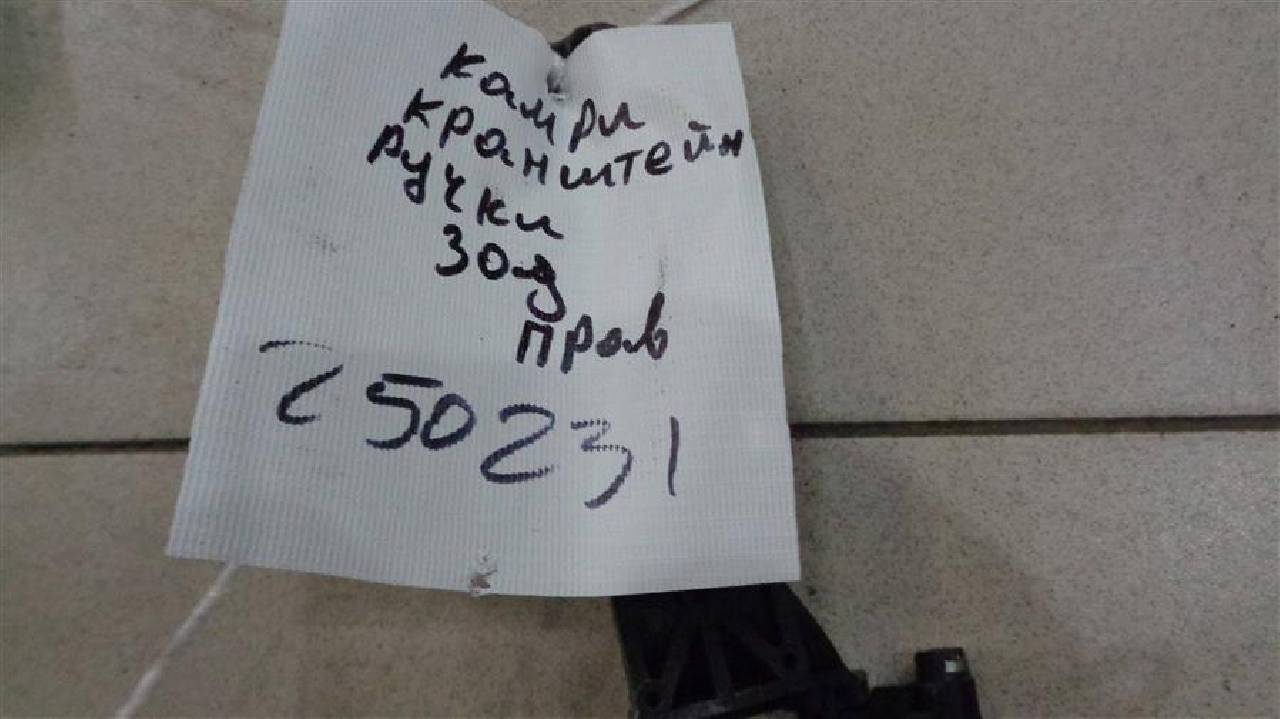 камри
кранштейн
ручки
зад
прав
250231